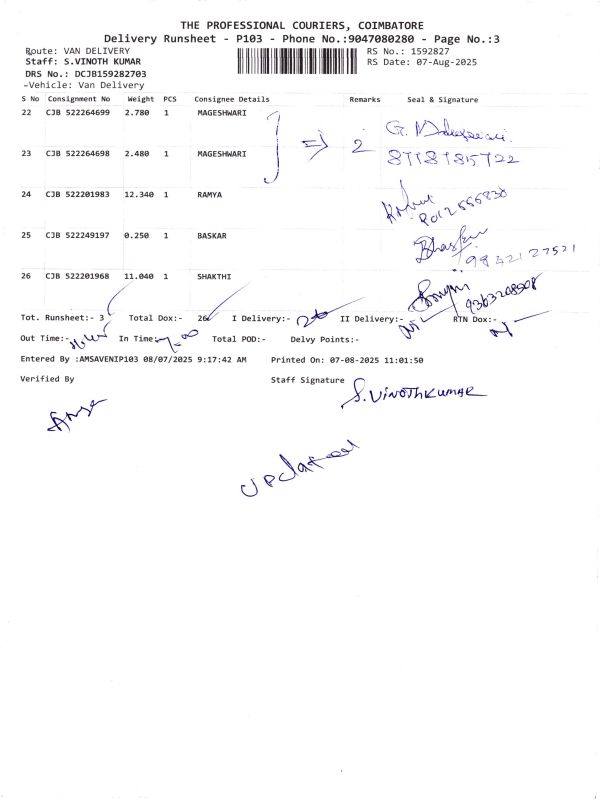 THE PROFESSIONAL COURIERS, COIMBATORE
Delivery Runsheet - P103 - Phone No.:9047080280 - Page No.:3
Route: VAN DELIVERY RS No.: 1592827
Staff: S.VINOTH KUMAR RS Date: 07-Aug-2025
DRS No.: DCJB159282703
-Vehicle: Van Delivery
S No Consignment No Weight PCS Consignee Details Remarks Seal & Signature
22 CJB 522264699 2.780 1 MAGESHWARI
23 CJB 522264698 2.480 1 MAGESHWARI 2
24 CJB 522201983 12.340 1 RAMYA
25 CJB 522249197 0.250 1 BASKAR
9842127521
26 CJB 522201968 11.040 1 SHAKTHI
Tot. Runsheet:- 3 Total Dox:- 26 I Delivery:- 26 II Delivery:- RTN Dox:-
Out Time:- In Time:- 7.00 Total POD:- Delvy Points:-
Entered By :AMSAVENIP103 08/07/2025 9:17:42 AM Printed On: 07-08-2025 11:01:50
Verified By Staff Signature S.VINOTHKUMAR
updated